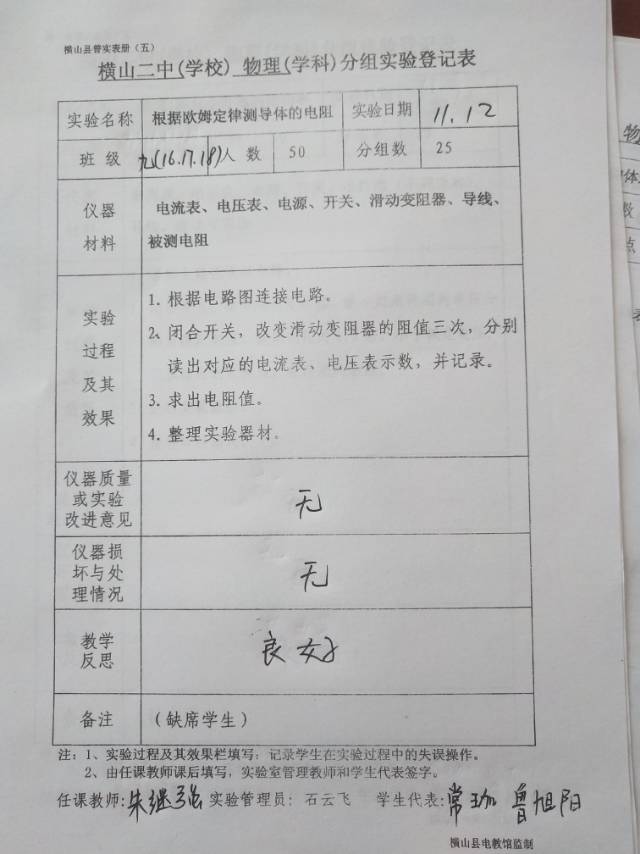 横山县普实表册（五）
横山二中(学校) 物理(学科)分组实验登记表
实验名称 根据欧姆定律测导体的电阻 实验日期 11.12
班级 九(16.17.18) 人数 50 分组数 25
仪器 电流表、电压表、电源、开关、滑动变阻器、导线、
材料 被测电阻
实验 1. 根据电路图连接电路。
过程 2、闭合开关，改变滑动变阻器的阻值三次，分别
及其 读出对应的电流表、电压表示数，并记录。
效果 3. 求出电阻值。
4. 整理实验器材。
仪器质量
或实验 无
改进意见
仪器损
坏与处 无
理情况
教学 良好
反思
备注 （缺席学生）
注：1、实验过程及其效果栏填写：记录学生在实验过程中的失误操作。
2、由任课教师课后填写，实验室管理教师和学生代表签字。
任课教师：朱继强 实验管理员：石云飞 学生代表：常珈 鲁旭阳
横山县电教馆监制